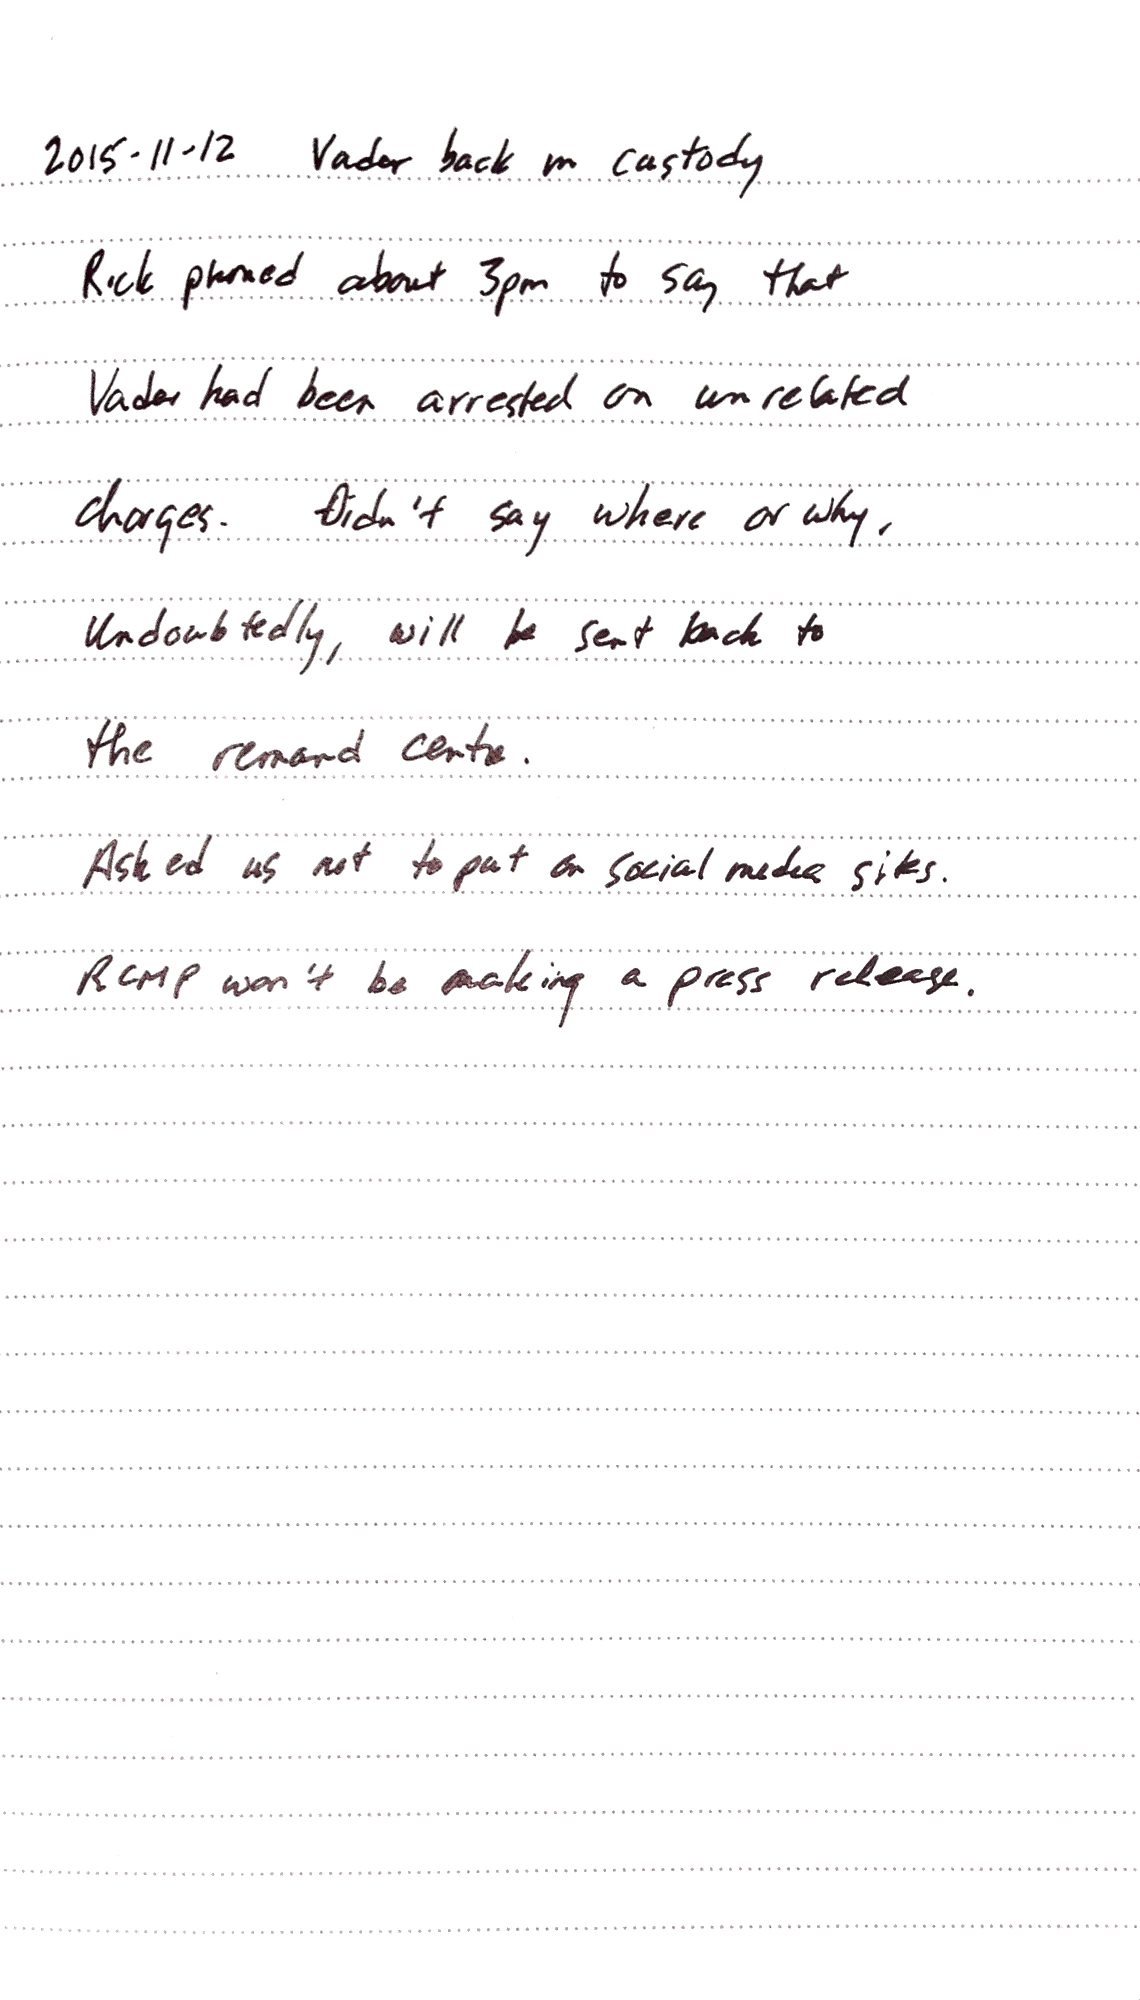 2015-11-12 Vader back in custody
Rick phoned about 3pm to say that
Vader had been arrested on unrelated
charges. Didn't say where or why.
Undoubtedly, will be sent back to
the remand centre.
Asked us not to put on social media sites.
RCMP won't be making a press release.